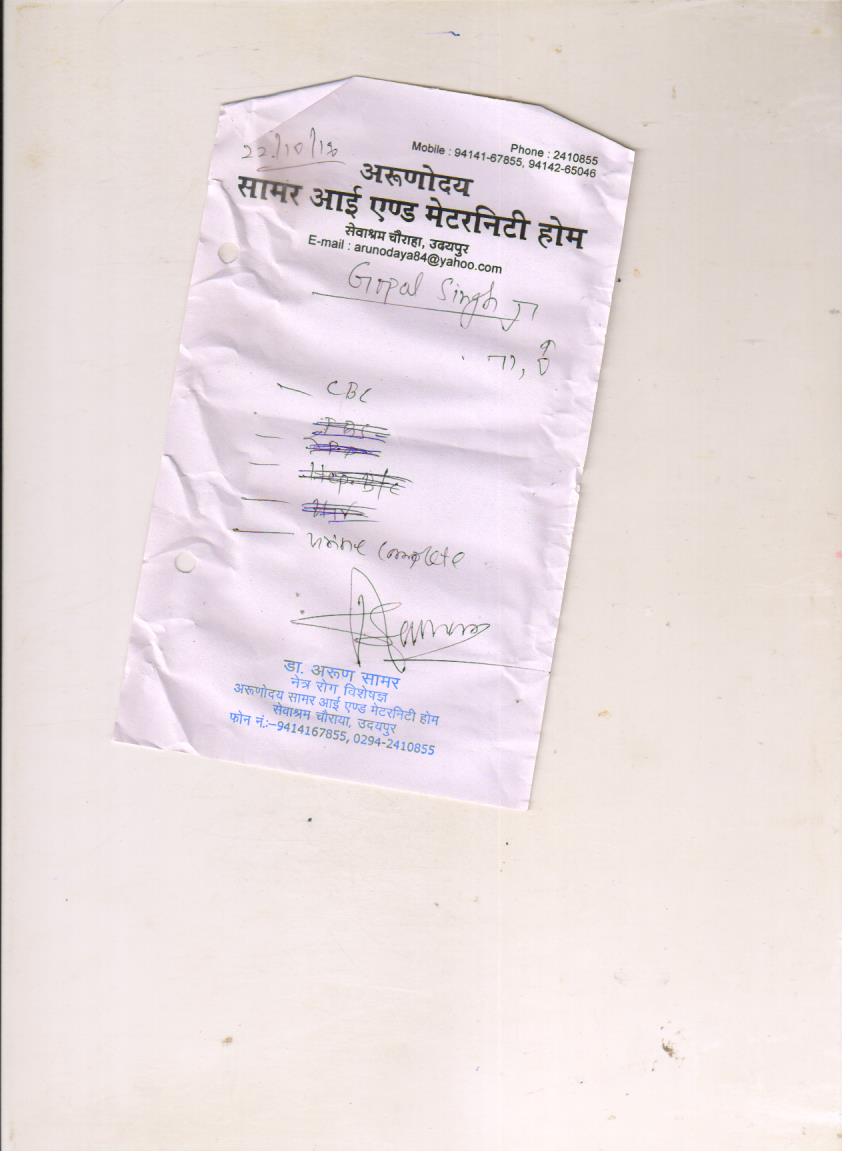 Phone : 2410855
22/10/18 Mobile : 94141-67855, 94142-65046
अरूणोदय
सामर आई एण्ड मेटरनिटी होम
सेवाश्रम चौराहा, उदयपुर
E-mail : arunodaya84@yahoo.com
Gopal Singh Ji
— CBC
—
—
—
— Urine Complete
डा. अरूण सामर
नेत्र रोग विशेषज्ञ
अरूणोदय सामर आई एण्ड मेटरनिटी होम
सेवाश्रम चौराया, उदयपुर
फोन नं.:–9414167855, 0294-2410855